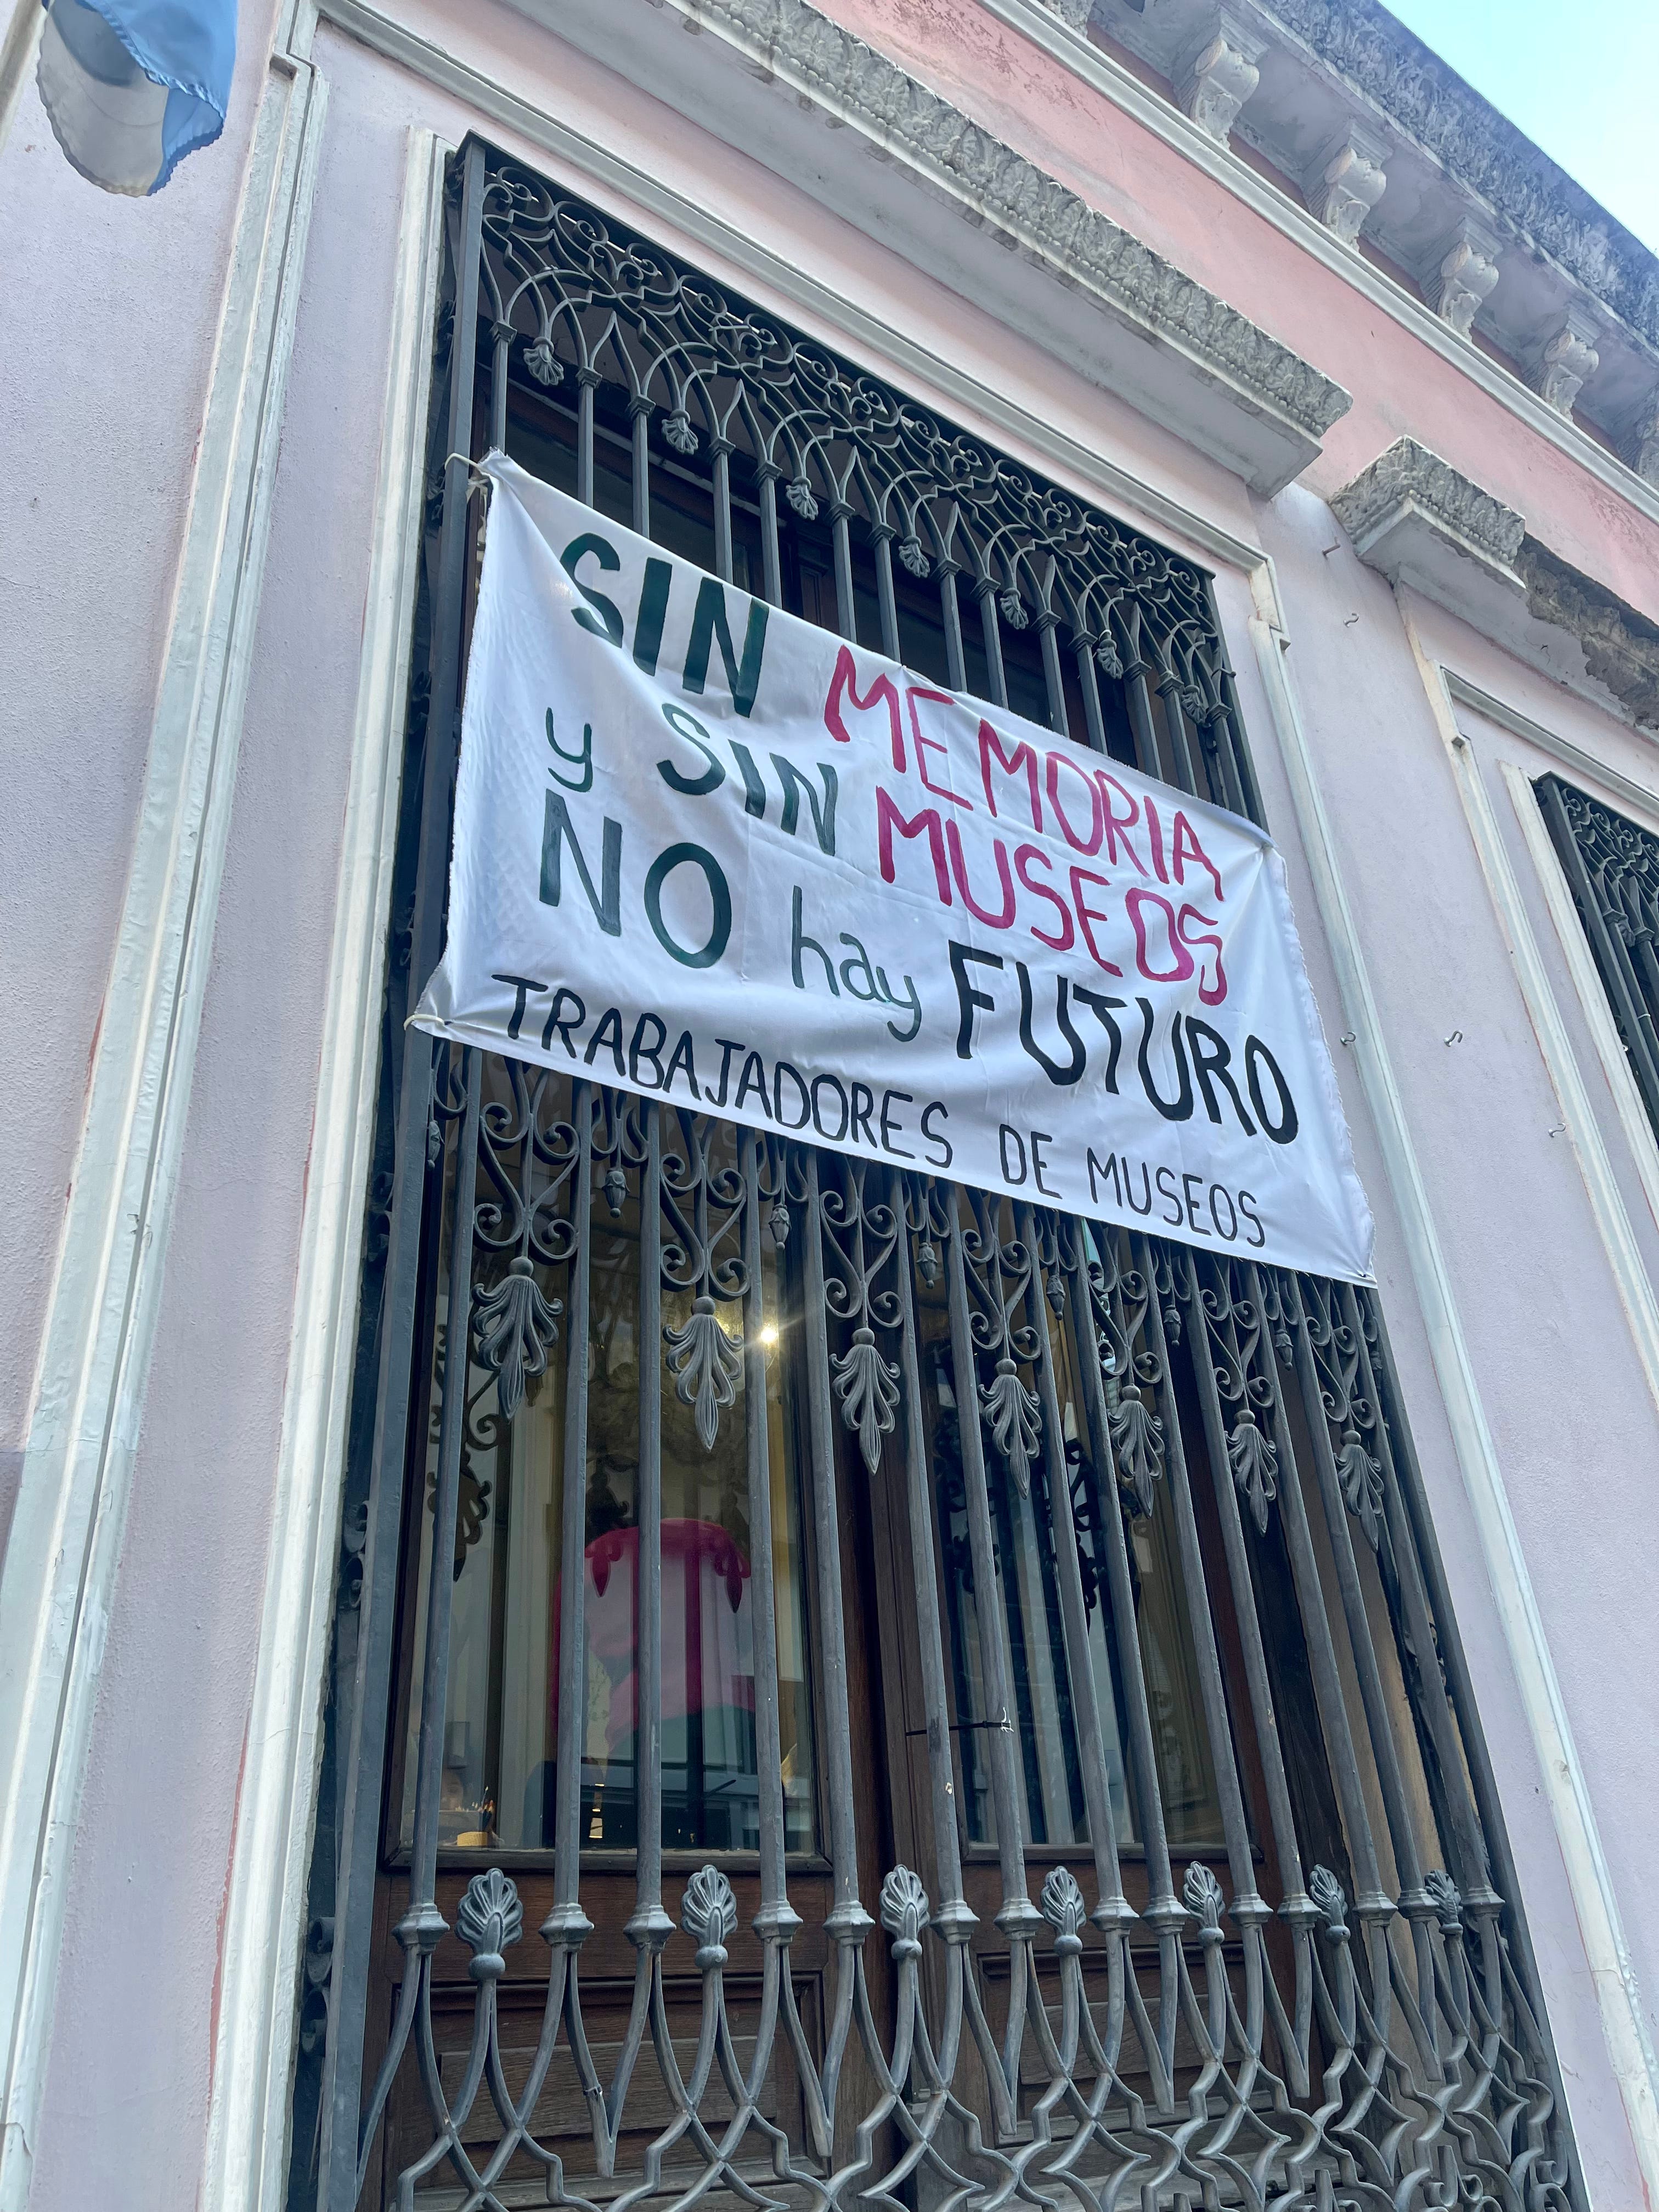 SIN MEMORIA
y SIN MUSEOS
NO hay FUTURO
TRABAJADORES DE MUSEOS